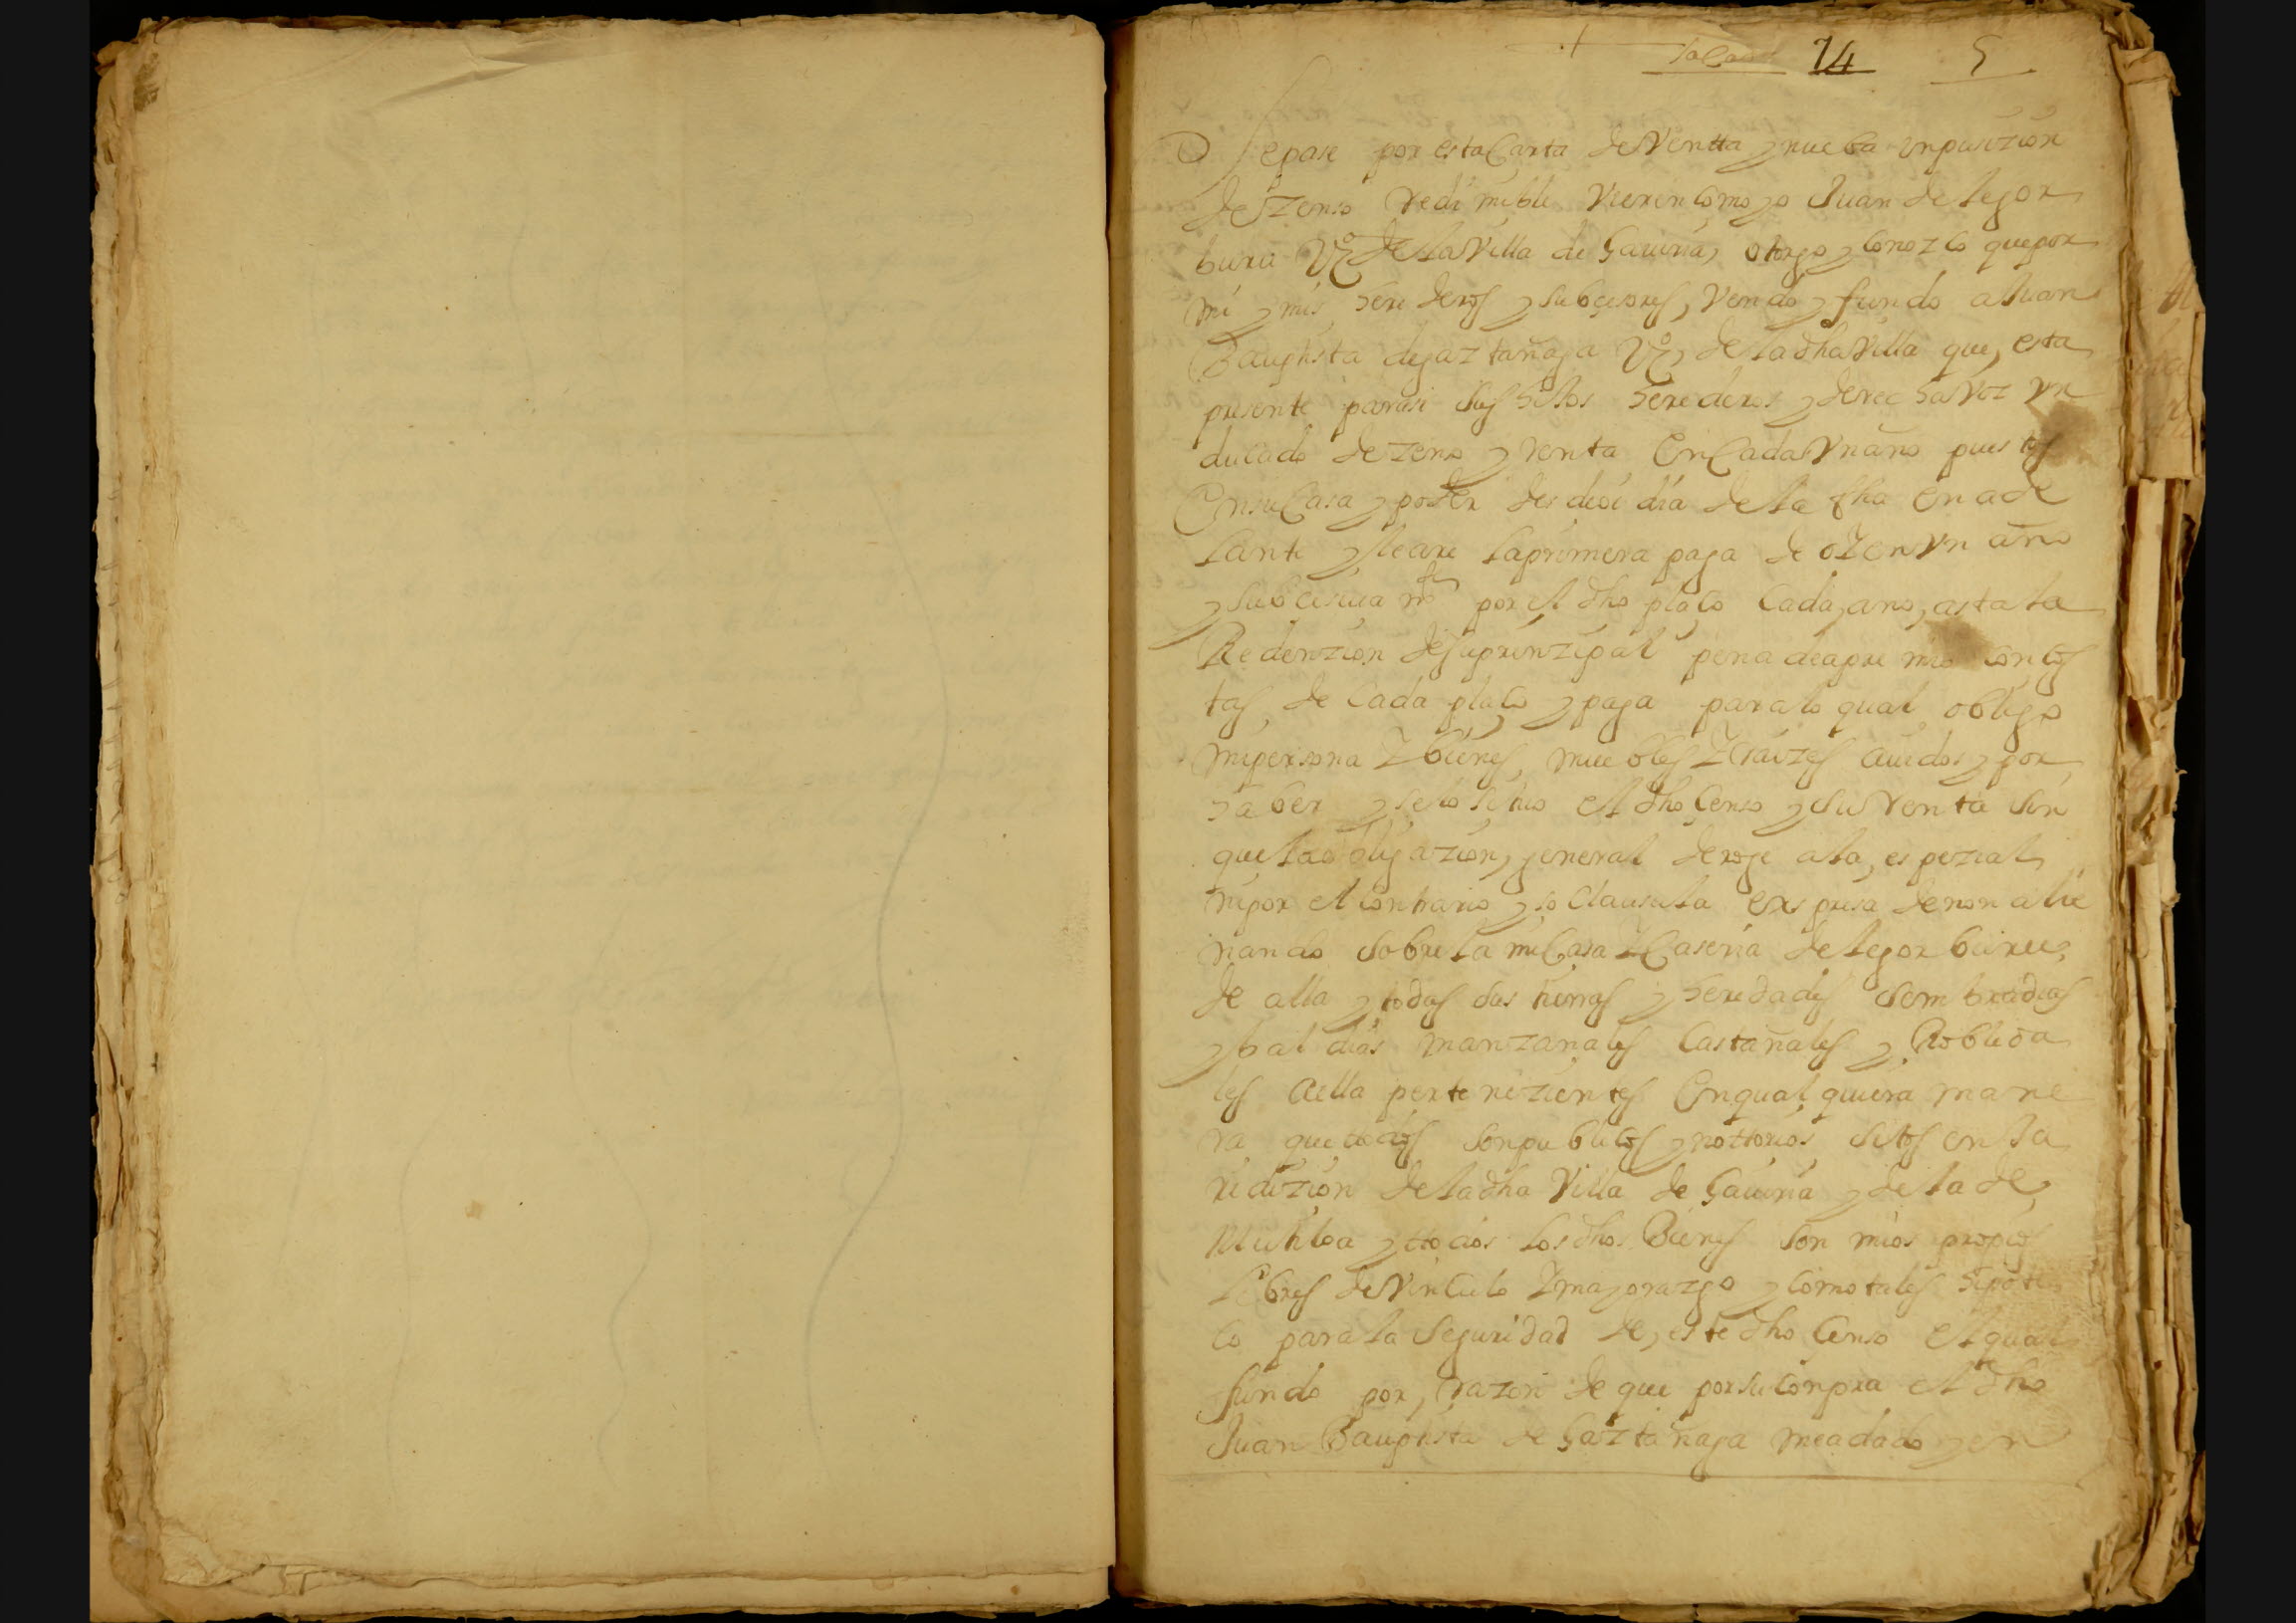 74 5
Sepase por esta Carta de Ventta y nueba ynpusizion
de Zenso redimible Vieren como yo Juan de legor
buru Vº de la Villa de Gauiria, otorgo y conozco que por
mi y mis herederos y subcesores, Vendo y fundo a Juan
Bauphista de gaztañaga Vº de la dha Villa que, esta
presente para si sus hijos herederos y derecha Voz Vn
ducado de Zenso y renta En Cada Vn año puestos
En su Casa y poder desde oi dia de la fha en ade
lante y le are la primera paga de oZ en Vn año
y subcesiuamte por el dho plaço cada, año, asta la
Redenzion de su prinzipal pena de apremio con cos
tas de Cada plaço y paga para lo qual obligo
mi persona Z bienes, muebles Z raizes auidos y por
haber y sitio el dho Censo y su renta sin
que la obligazion, general deroge a la, espezial
ni por el contrario y so clausula expresa de non alie
nando sobre la mi Casa Z Caseria de legorburu
de alla y todas sus tierras y heredades sembradias
y baldias manzanales Castañales y Robleda
les a ella pertenezientes En qual quiera mane
ra que todos son publicos y nottorios sitos en Ja
ridizion de la dha Villa de Gauiria y de la de
Mutiloa y ttodos los dhos Bienes son mios propios
libres de Vinculo Z mayorazgo y como tales hipote
co para la seguridad de, este dho Censo el qual
fundo por, razon de que por su conpra el dho
Juan Bauphista de Gaztañaga me a dado y en